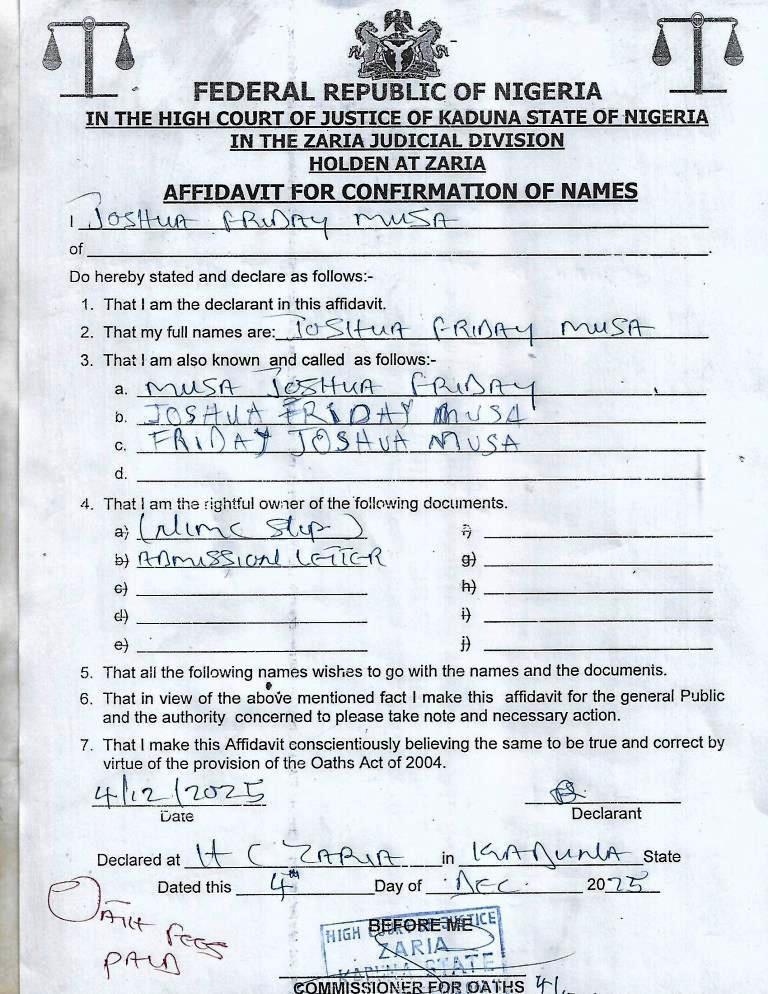 FEDERAL REPUBLIC OF NIGERIA
IN THE HIGH COURT OF JUSTICE OF KADUNA STATE OF NIGERIA
IN THE ZARIA JUDICIAL DIVISION
HOLDEN AT ZARIA
AFFIDAVIT FOR CONFIRMATION OF NAMES
I JOSHUA FRIDAY MUSA
of
Do hereby stated and declare as follows:-
1. That I am the declarant in this affidavit.
2. That my full names are: JOSHUA FRIDAY MUSA
3. That I am also known and called as follows:-
a. MUSA JOSHUA FRIDAY
b. JOSHUA FRIDAY MUSA
c. FRIDAY JOSHUA MUSA
d.
4. That I am the rightful owner of the following documents.
a) (NIMC Slip) f)
b) ADMISSIONAL LETTER g)
c) h)
d) i)
e) j)
5. That all the following names wishes to go with the names and the documents.
6. That in view of the above mentioned fact I make this affidavit for the general Public
and the authority concerned to please take note and necessary action.
7. That I make this Affidavit conscientiously believing the same to be true and correct by
virtue of the provision of the Oaths Act of 2004.
4/12/2025
Date Declarant
Declared at H C ZARIA in KADUNA State
Dated this 4th Day of DEC. 2025
OATH FEES
PAID
BEFORE ME
HIGH COURT OF JUSTICE
ZARIA
KADUNA STATE
COMMISSIONER FOR OATHS